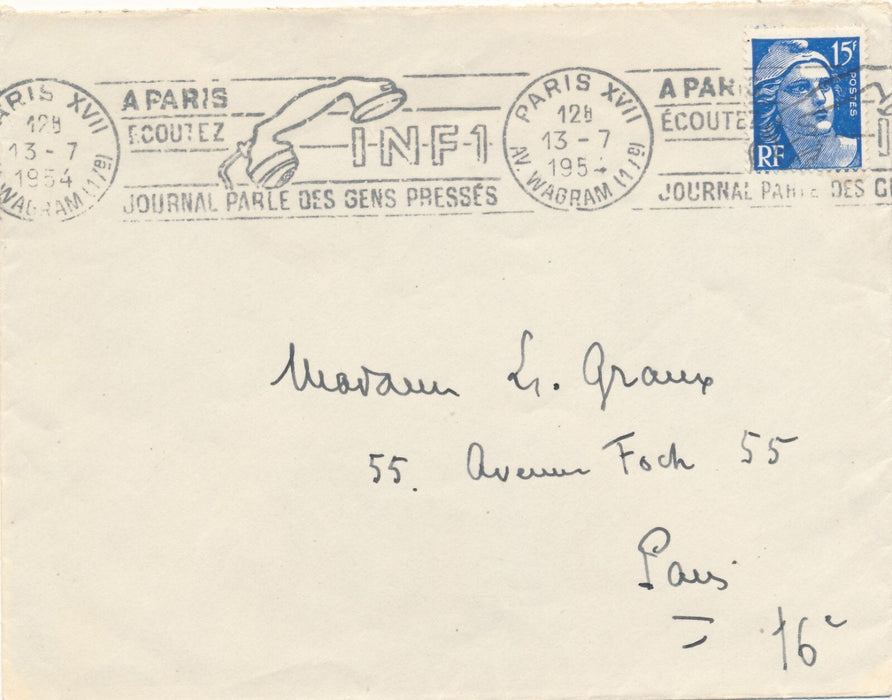 PARIS XVII
12H
13-7
1954
AV. WAGRAM (17e)
A PARIS
ÉCOUTEZ
I-N-F-1
JOURNAL PARLE DES GENS PRESSÉS
PARIS XVII
12H
13-7
1954
AV. WAGRAM (17e)
A PAR
ÉCOUTEZ
JOURNAL PARLE DES GE
15F
POSTES
RF
Madame L. Graux
55. Avenue Foch 55
Paris
16e